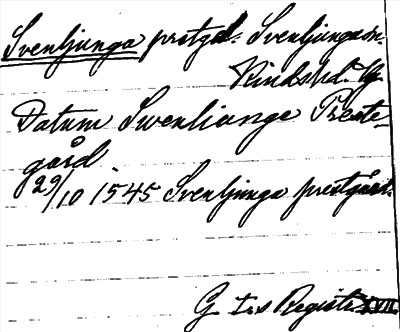 Svenljunga prstgd. Svenljunga sn.
Kinds hd. Vg
Datum Swenliange Preste-
gård
29/10 1545 Svenljunga prestgård.
G I:s Registr. XVII.